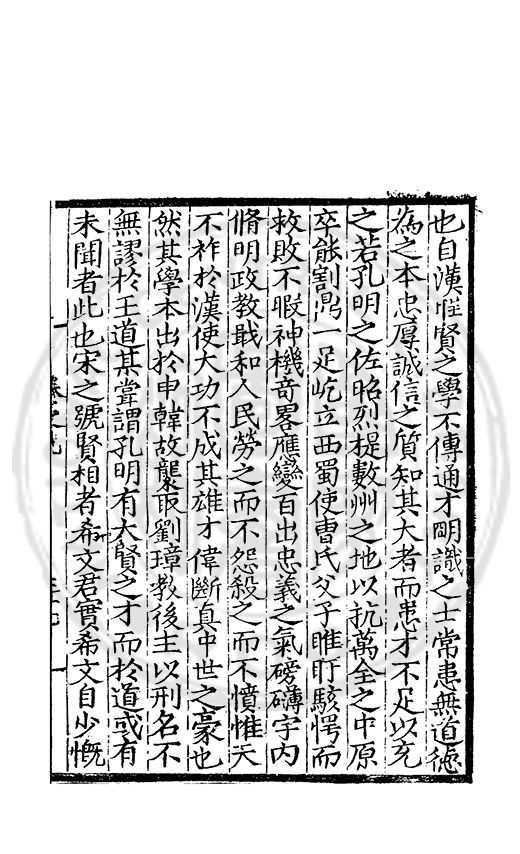 也自漢唐聖賢之學不傳通才明識之士常患無道德
為之本忠厚誠信之質知其大者而患才不足以充
之若孔明之佐昭烈提數州之地以抗萬全之中原
卒能割鼎一足屹立西蜀使曹氏父子睢盱駭愕而
救敗不暇神機奇畧應變百出忠義之氣磅礴宇内
脩明政教戢和人民勞之而不怨殺之而不憤惟天
不祚於漢使大功不成其雄才偉斷真中世之豪也
然其學本出於申韓故襲取劉璋教後主以刑名不
無謬於王道某嘗謂孔明有大賢之才而於道或有
未聞者此也宋之號賢相者希文君實希文自少慨